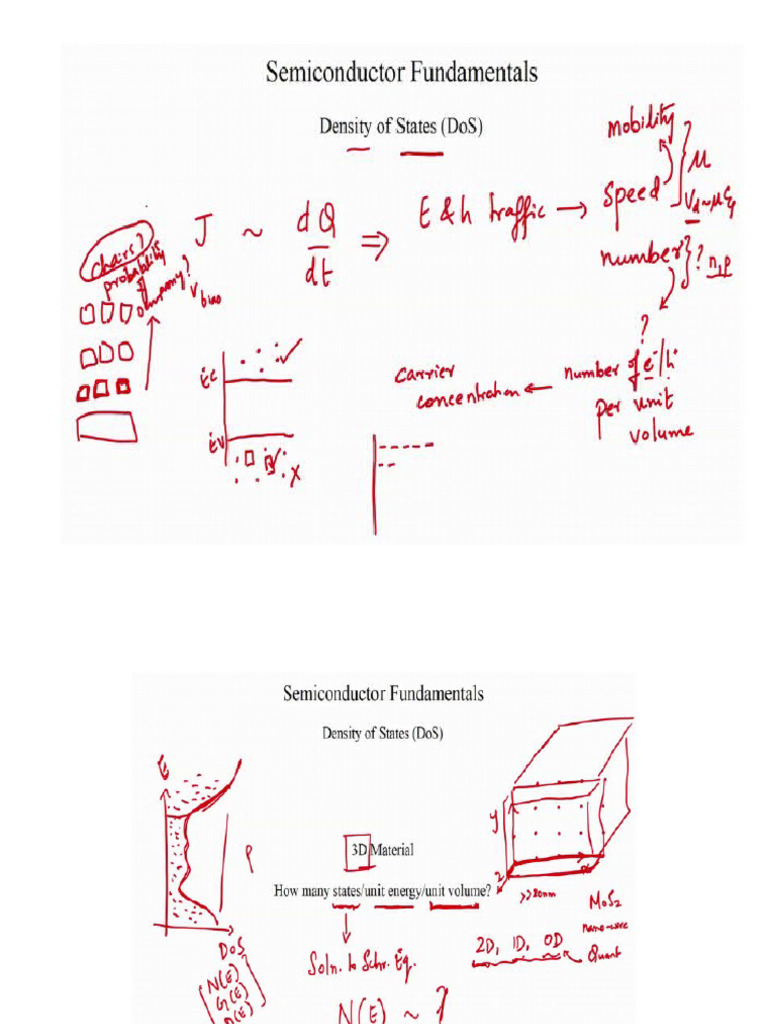 Semiconductor Fundamentals
Density of States (DoS)
mobility
μ
J ~ dQ/dt ⇒ E & h traffic → speed
Vd ~ μE
chairs?
probability
Vbias
number ? n, p
?
Ec
Ev
carrier
concentration ← number of e⁻/h⁺
per unit
volume
Semiconductor Fundamentals
Density of States (DoS)
E
y
3D Material
How many states/unit energy/unit volume?
z
>>20nm
MoS2
nano-wire
DoS
2D, 1D, 0D
Quant
Soln. to Schr. Eq.
N(E)
G(E)
N(E) ~ ?